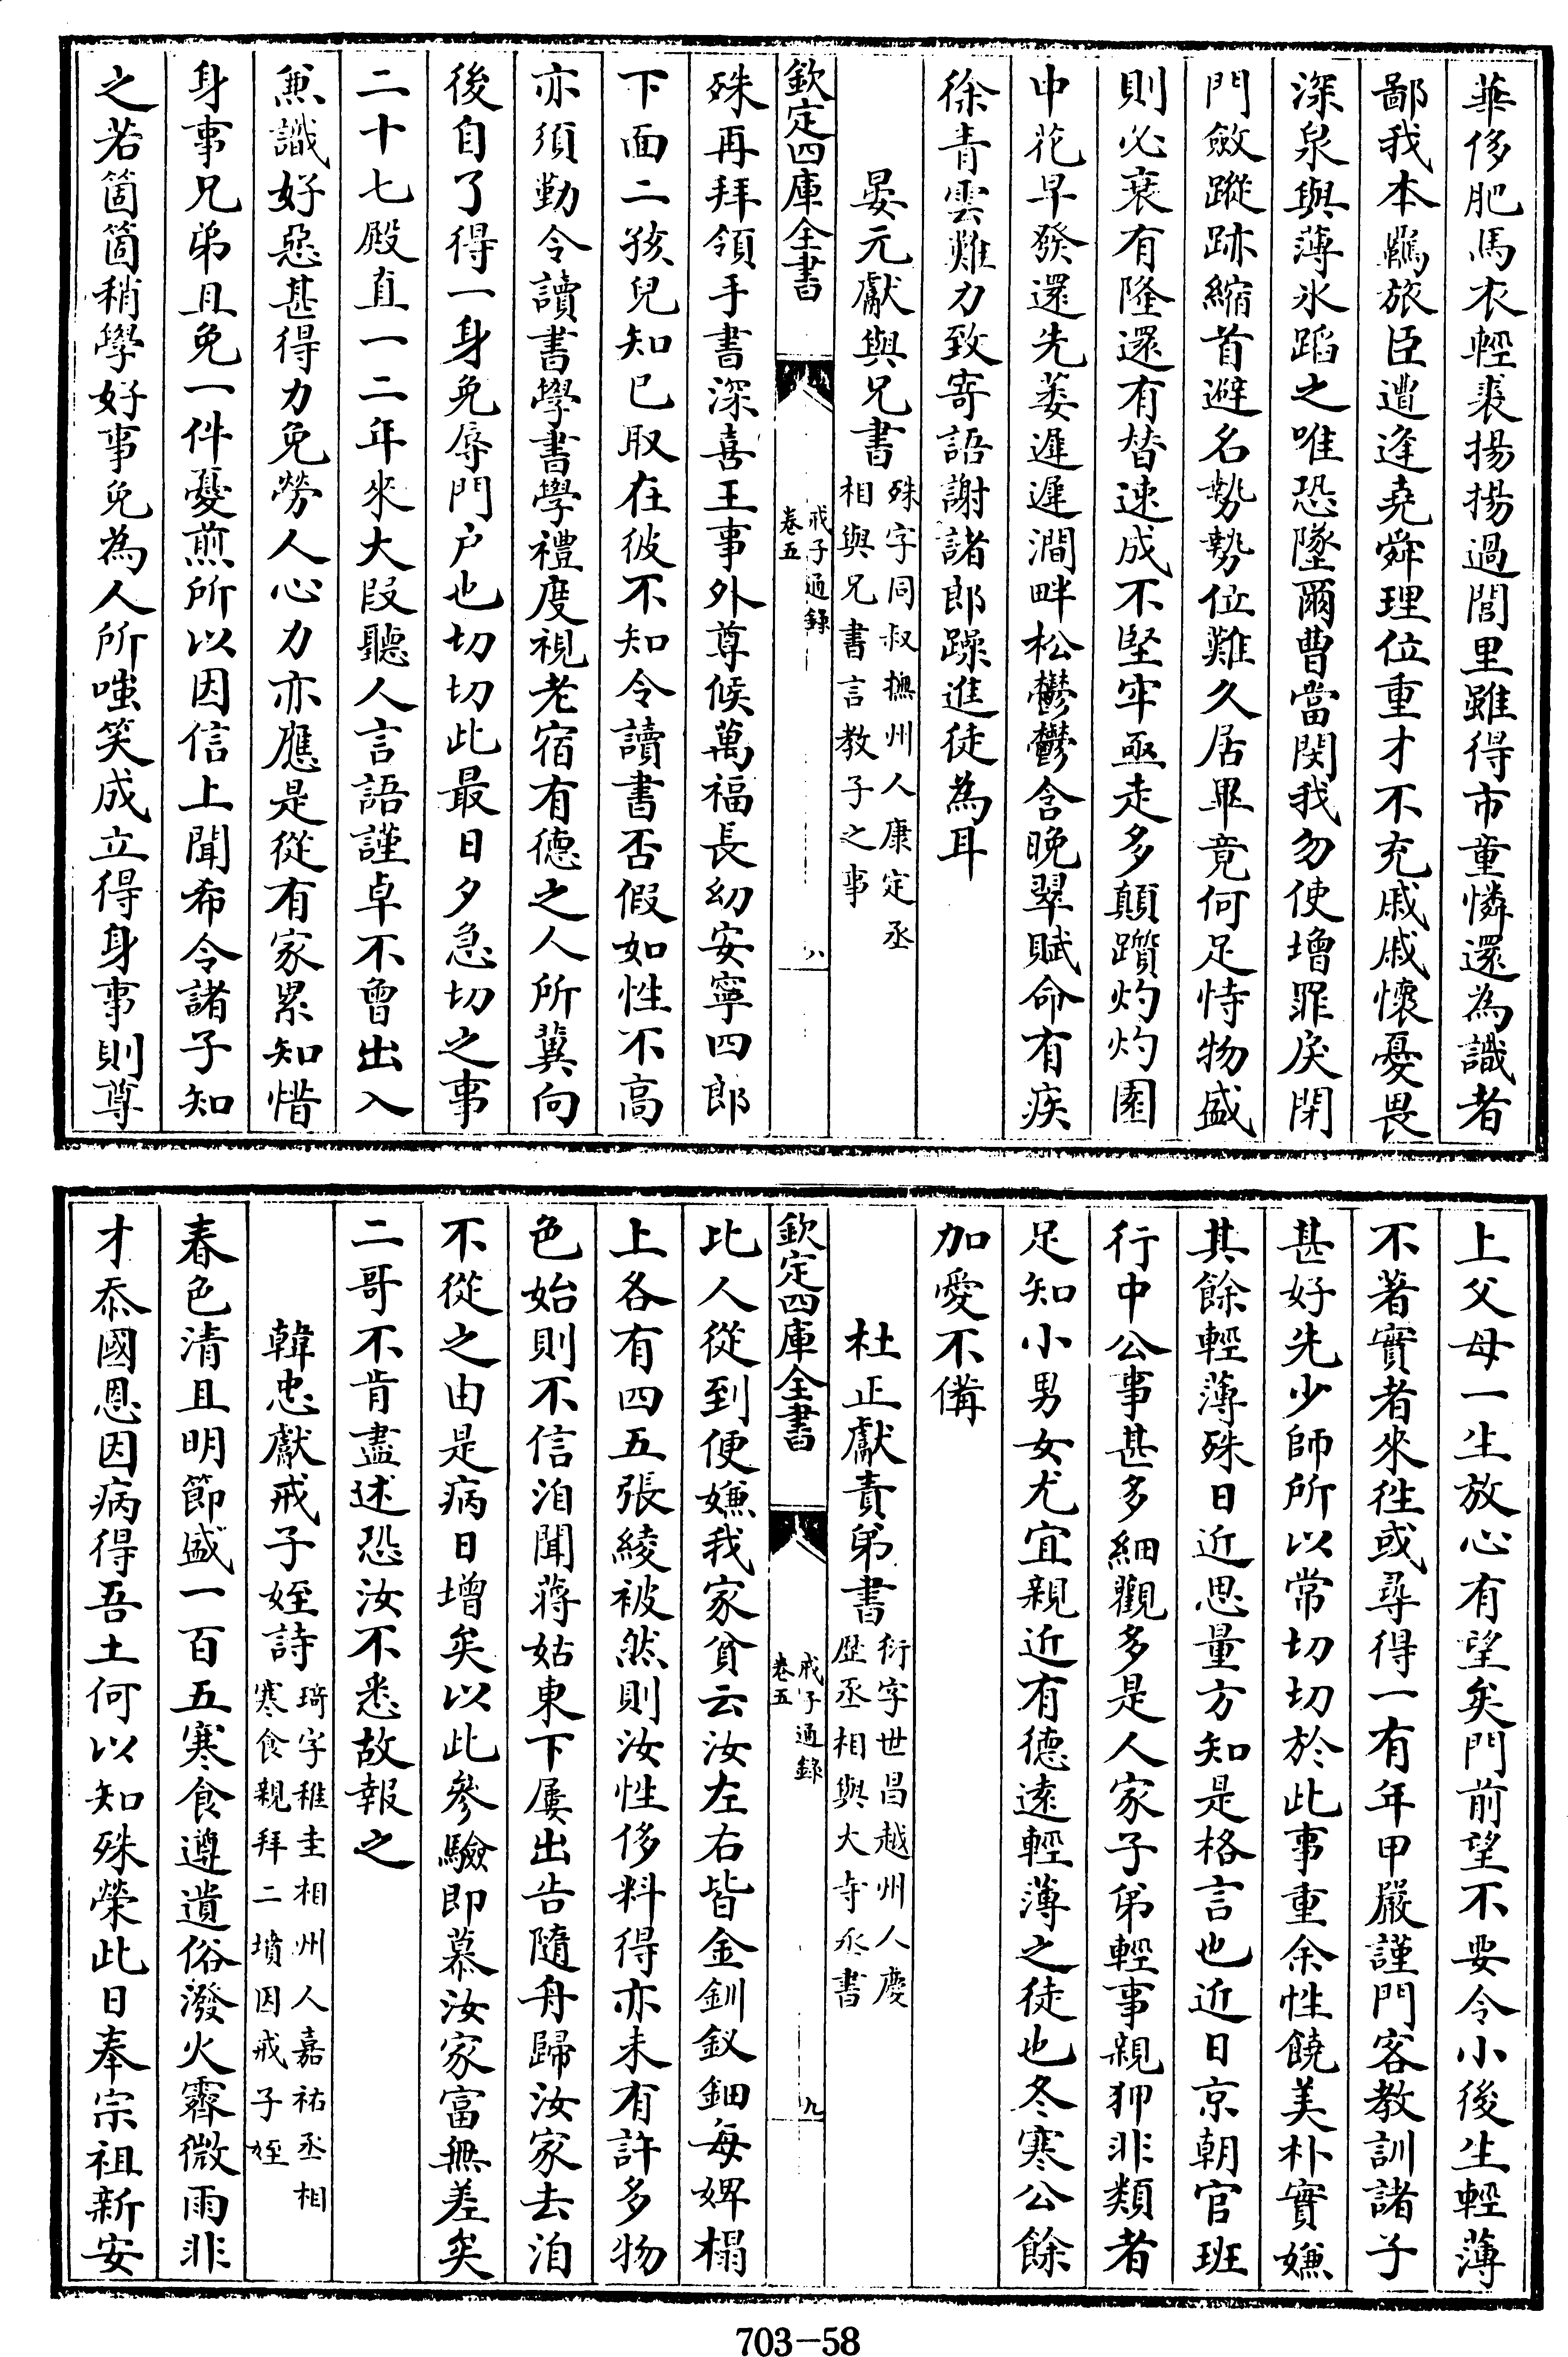 華侈肥馬衣輕裘揚揚過閭里雖得市童憐還為識者
鄙我本羈旅臣遭逢堯舜理位重才不充戚戚懷憂畏
深泉與薄氷蹈之唯恐墜爾曹當閔我勿使增罪戾閉
門斂蹤跡縮首避名勢勢位難久居畢竟何足恃物盛
則必衰有隆還有替速成不堅牢亟走多顛躓灼灼園
中花早發還先萎遲遲澗畔松鬱鬱含晚翠賦命有疾
徐青雲難力致寄語謝諸郎躁進徒為耳
晏元獻與兄書
殊字同叔撫州人康定丞
相與兄書言教子之事
欽定四庫全書
戒子通錄
卷五
八
殊再拜領手書深喜王事外尊候萬福長幼安寧四郎
下面二孩兒知已取在彼不知令讀書否假如性不高
亦須勤令讀書學書學禮度視老宿有德之人所冀向
後自了得一身免辱門户也切切此最日夕急切之事
二十七殿直一二年來大段聽人言語謹卓不曾出入
兼識好惡甚得力免勞人心力亦應是從有家累知惜
身事兄弟且免一件憂煎所以因信上聞希令諸子知
之若箇箇稍學好事免為人所嗤笑成立得身事則尊
上父母一生放心有望矣門前望不要令小後生輕薄
不著實者來往或尋得一有年甲嚴謹門客教訓諸子
甚好先少師所以常切切於此事重余性饒美朴實嫌
其餘輕薄殊日近思量方知是格言也近日京朝官班
行中公事甚多細觀多是人家子弟輕事親狎非類者
足知小男女尤宜親近有德遠輕薄之徒也冬寒公餘
加愛不備
杜正獻責弟書
衍字世昌越州人慶
歴丞相與大寺丞書
欽定四庫全書
戒子通錄
卷五
九
比人從到便嫌我家貧云汝左右皆金釧釵鈿每婢榻
上各有四五張綾被然則汝性侈料得亦未有許多物
色始則不信洎聞蔣姑東下屢出告隨舟歸汝家去洎
不從之由是病日增矣以此參驗即慕汝家富無差矣
二哥不肯盡述恐汝不悉故報之
韓忠獻戒子姪詩
琦字稚圭相州人嘉祐丞相
寒食親拜二墳因戒子姪
春色清且明節盛一百五寒食遵遺俗潑火霽微雨非
才忝國恩因病得吾土何以知殊榮此日奉宗祖新安
703-58